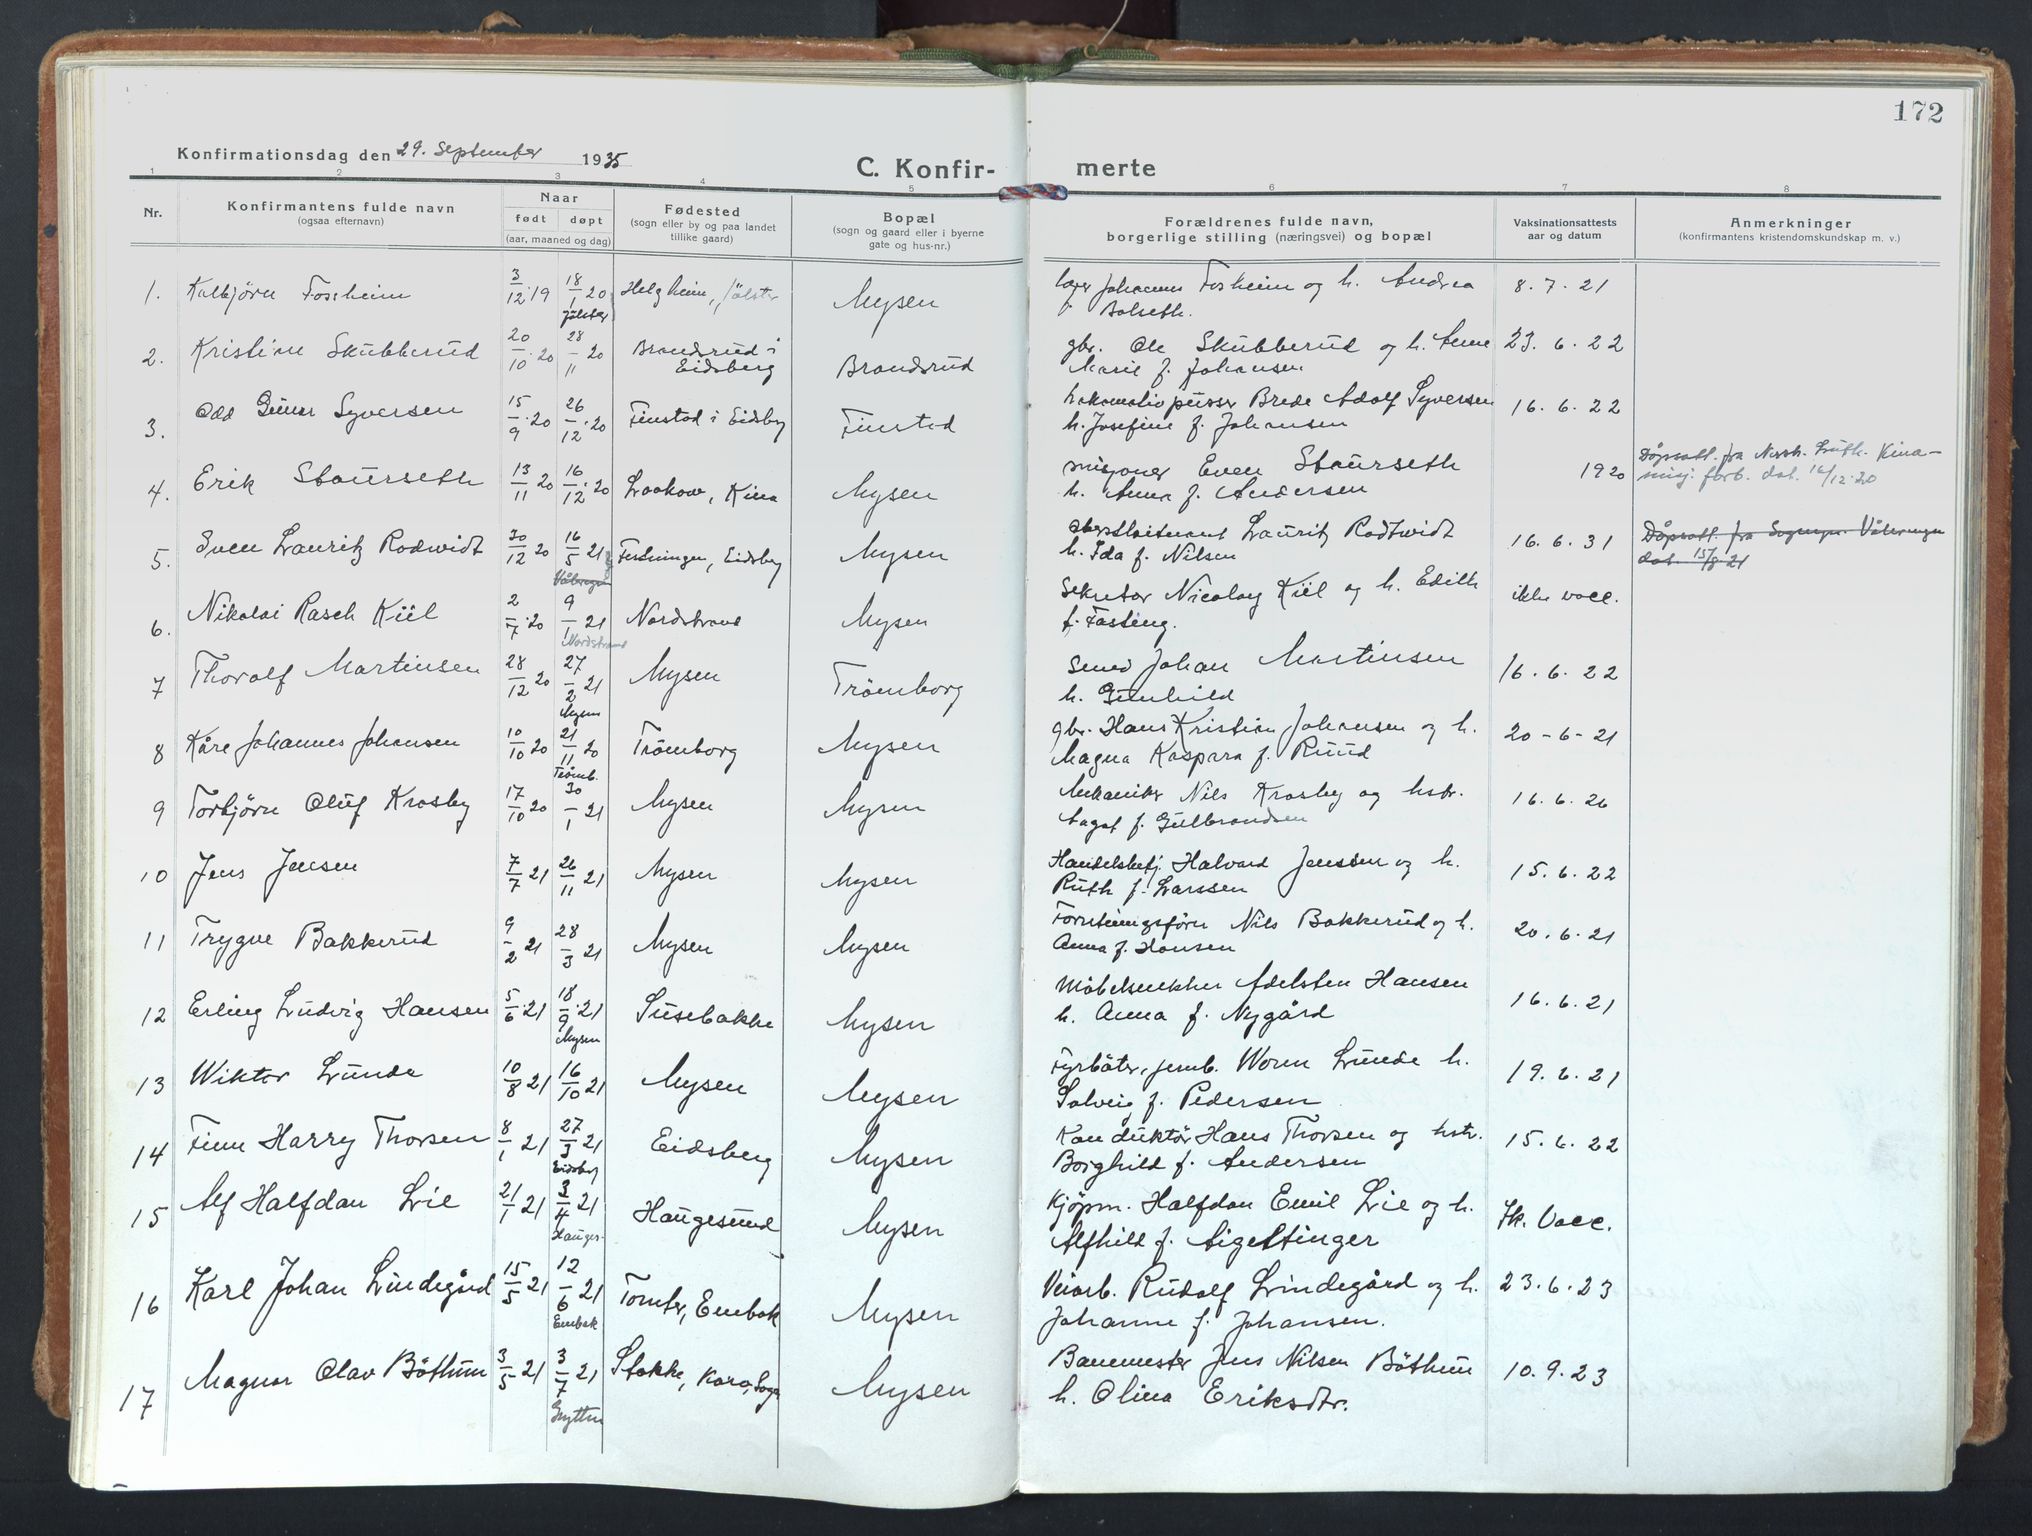 172
Konfirmationsdag den 29. September 1935
C. Konfir- merte
1 2 3 4 5 6 7 8
Nr.
Konfirmantens fulde navn
(ogsaa efternavn)
Naar
født døpt
(aar, maaned og dag)
Fødested
(sogn eller by og paa landet
tillike gaard)
Bopæl
(sogn og gaard eller i byerne
gate og hus-nr.)
Forældrenes fulde navn,
borgerlige stilling (næringsvei) og bopæl
Vaksinationsattests
aar og datum
Anmerkninger
(konfirmantens kristendomskundskap m. v.)
1. Kolbjörn Fossheim 3/12 19 18/1 20 Helgheim, Jölster Mysen Johannes Fosheim og h. Andrea 8. 7. 21
Jölster Bolseth.
2. Kristian Skubberud 20/10 20 28/11 20 Brandsrud i Brandsrud gbr. Ole Skubberud og h. Anne 23. 6. 22
Eidsberg Marie f. Johansen
3. Odd Gunnar Syversen 15/9 20 26/12 20 Finstad i Eidsberg Finstad Lokomotivpusser Brede Adolf Syversen 16. 6. 22
h. Josefine f. Johansen
4. Erik Staurseth 13/11 20 16/12 20 Laokow, Kina Mysen misjonær Even Staurseth 1920 Dåpsatt. fra Norsk. Luth. Kina-
h. Anna f. Andersen misj. forb. dat. 16/12 20
5. Sven Lauritz Rodtwidt 30/12 20 16/5 21 Festningen, Eidsberg Mysen oberstløitnant Lauritz Rodtwidt 16. 6. 31 Dåpsatt. fra Sognepr. Vålerengen
Vålerengen h. Ida f. Nilsen dat. 15/8 21
6. Nikolai Rasch Kiil 2/7 20 9/1 21 Nordstrand Mysen Sekretær Nicolay Kiil og h. Edith ikke vacc.
Nordstrand f. Fasting.
7 Thoralf Martinsen 28/12 20 27/2 21 Mysen Trömborg Smed Johan Martinsen 16. 6. 22
Mysen h. Gunhild
8 Kåre Johannes Johansen 10/10 20 21/11 20 Trömborg Mysen gbr. Hans Kristian Johansen og h. 20-6-21
Trömb. Magna Kaspara f. Ruud
9 Torbjörn Oluf Krosby 17/10 20 30/1 21 Mysen Mysen Mekaniker Nils Krosby og hstr. 16. 6. 26
Aagot f. Gulbrandsen
10 Jens Jensen 7/7 21 26/11 21 Mysen Mysen Handelsbetj. Halvard Jenssen og h. 15. 6. 22
Ruth f. Larssen
11 Trygve Bakkerud 9/2 21 28/3 21 Mysen Mysen Nils Bakkerud og h. 20. 6. 21
Anna f. Hansen
12 Erling Ludvig Hansen 5/6 21 18/9 21 Susebakke Mysen Möbelsnekker Adelsten Hansen 16. 6. 21
Mysen h. Anna f. Nygård
13 Wiktor Lunde 10/8 21 16/10 21 Mysen Mysen Fyrböter, jernb. Worm Lunde h. 19. 6. 21
Solveig f. Pedersen
14 Finn Harry Thorsen 8/1 21 27/3 21 Eidsberg Mysen Konduktör Hans Thorsen og hstr. 15. 6. 22
Eidsberg Borghild f. Andersen
15 Alf Halfdan Lie 21/1 21 3/4 21 Haugesund Mysen Kjöpm. Halfdan Emil Lie og h. Ik. Vacc.
Hauges- Alfhild f. Aigeltinger
16 Karl Johan Lindegård 15/5 21 12/6 21 Tomter, Enebak Mysen Veiarb. Rudolf Lindegård og h. 23. 6. 23
Enebak Johanne f. Johansen.
17 Magnar Olav Böthun 3/5 21 3/7 21 Stokke, Karo, Sogn Mysen Banemester Jens Nilsen Böthun 10. 9. 23
Grytten h. Olina Eriksdtr.